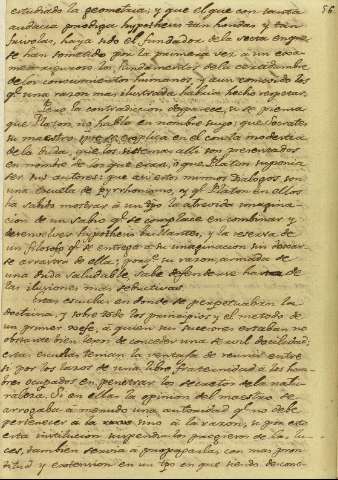 56
estudiado la geometria; y que el que con tanta
audacia prodiga hypothesis tan hondas y tan
frivolas, haya sido el fundador de la secta en que
se han sometido por la primera vez á un exa-
men riguroso los fundamentos de la certidumbre
de los conocimientos humanos, y aun conmovido los
qe. una razon mas ilustrada habria hecho respetar.
Pero la contradiccion desparece si se piensa
que Platon no habla en nombre suyo; que Socrates
su maestro se explica con la modestia
de la duda, que los sistemas alli son presentados
en nombre de los que eran, ó que Platon suponia
ser sus autores: que asi estos mismos Dialogos son
una escuela de pyrrhonismo, y qe. Platon en ellos
ha sabido mostrar á un tpo. la atrevida imagina-
cion de un sabio qe. se complace en combinar y
desenvolver hypothesis brillantes, y la reserva de
un filosofo qe. se entrega á su imaginacion sin dexar-
se arrastrar de ella; porqe. su razon, armada de
una duda saludable, sabe defenderse de
las ilusiones mas seductivas.
Estas escuelas en donde se perpetuaban la
doctrina, y sobre todo los principios y el metodo de
un primer Gefe, á quien sus sucesores estaban no
obstante bien lexos de conceder una servil docilidad;
estas escuelas tenian la ventaja de reunir entre
si por los lazos de una libre fraternidad á los hom-
bres ocupados en penetrar los secretos de la natu-
raleza. Si en ellas la opinion del maestro se
arrogaba á menudo una autoridad qe. no debe
pertenecer á la sino á la razon; si por esto
esta institucion suspendia los progresos de las lu-
ces, tambien servia á propagarlas con mas pron-
titud y extension en un tpo. en que siendo desconc-